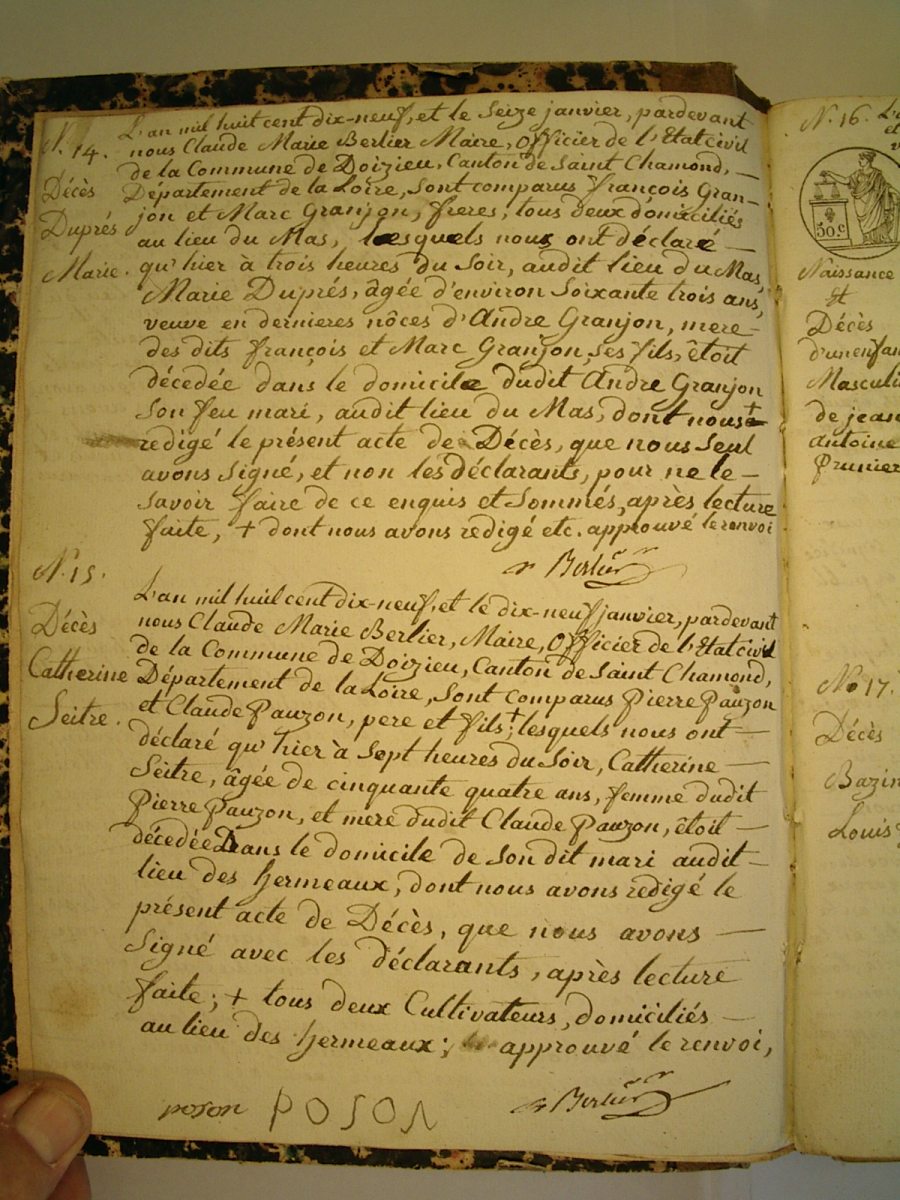 N. 14.
Décès
Duprés
Marie.
L'an mil huit cent dix-neuf, et le Seize janvier, pardevant
nous Claude Marie Berlier Maire, Officier de l'Etat civil
de la Commune de Doizieu, Canton de Saint Chamond, —
Département de la Loire, sont comparus françois Gran-
jon et Marc Granjon, freres, tous deux domiciliés
au lieu du Mas, lesquels nous ont déclaré —
qu'hier à trois heures du Soir, audit lieu du Mas,
Marie Duprés, âgée d'environ Soixante trois ans,
veuve en dernieres nôces d'Andre Granjon, mere —
des dits françois et Marc Granjon, ses fils, êtoit
décedée dans le domicile dudit Andre Granjon
son feu mari, audit lieu du Mas, dont nous +
redigé le présent acte de Décès, que nous Seul
avons Signé, et non les déclarants, pour ne le —
savoir faire de ce enquis et Sommés, après lecture
faite, + dont nous avons redigé etc. approuvé le renvoi
Berlier
N. 15.
Décès
Catherine
Seitre.
L'an mil huit cent dix-neuf, et le dix-neuf janvier, pardevant
nous Claude Marie Berlier, Maire, Officier de l'Etat civil
de la Commune de Doizieu, Canton de Saint Chamond,
Département de la Loire, Sont comparus Pierre Pauzon
et Claude Pauzon, pere et fils +; lesquels nous ont —
déclaré qu'hier à Sept heures du Soir, Catherine —
Seitre, âgée de cinquante quatre ans, femme dudit
Pierre Pauzon, et mere dudit Claude Pauzon, êtoit —
décedée Dans le domicile de Son dit mari audit —
lieu des hermeaux, dont nous avons redigé le
présent acte de Décès, que nous avons —
Signé avec les déclarants, après lecture
faite; + tous deux Cultivateurs, domiciliés —
au lieu des hermeaux; approuvé le renvoi,
poson POSON Berlier
N. 16. L'a
et
30.c
Naissance
et
Décès
d'un enfan
Masculi
de jean
antoine
Prunier
No 17.
Décès
Bazin
Louis